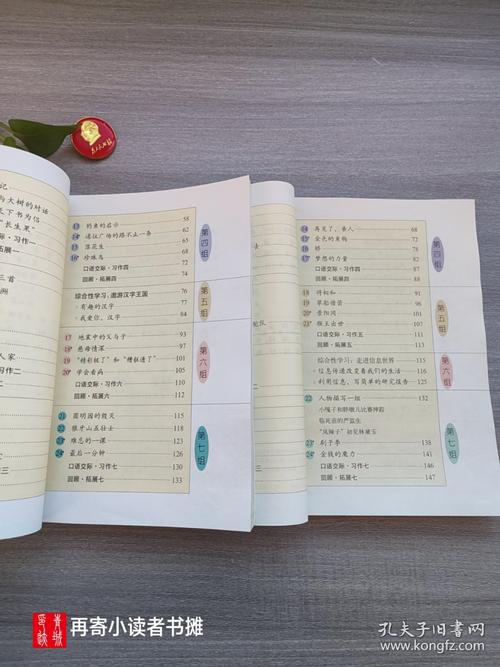 与大树的对话
天下书为侣
"长生果"
习作一
拓展一
三首
洲
人家
习作二
拓展二
三
13 钓鱼的启示 58
14* 通往广场的路不止一条 62
15 落花生 65
16* 珍珠鸟 68
口语交际·习作四 72
回顾·拓展四 74
第四组
综合性学习:遨游汉字王国 76
有趣的汉字 77
我爱你,汉字 84
第五组
17 地震中的父与子 93
18* 慈母情深 97
19* "精彩极了"和"糟糕透了" 101
20* 学会看病 105
口语交际·习作六 110
回顾·拓展六 112
第六组
21 圆明园的毁灭 115
22 狼牙山五壮士 118
23* 难忘的一课 123
24* 最后一分钟 126
口语交际·习作七 130
回顾·拓展七 133
第七组
14 再见了,亲人 68
15* 金色的鱼钩 73
16 桥 78
17* 梦想的力量 82
口语交际·习作四 87
回顾·拓展四 88
第四组
18 将相和 91
19 草船借箭 96
20* 景阳冈 100
21* 猴王出世 106
口语交际·习作五 111
回顾·拓展五 113
第五组
综合性学习:走进信息世界 115
信息传递改变着我们的生活 116
利用信息,写简单的研究报告 125
第六组
22 人物描写一组 132
小嘎子和胖墩儿比赛摔跤
临死前的严监生
"凤辣子"初见林黛玉
23* 刷子李 138
24* 金钱的魔力 141
口语交际·习作七 146
回顾·拓展七 147
第七组
再寄小读者书摊
孔夫子旧书网
www.kongfz.com